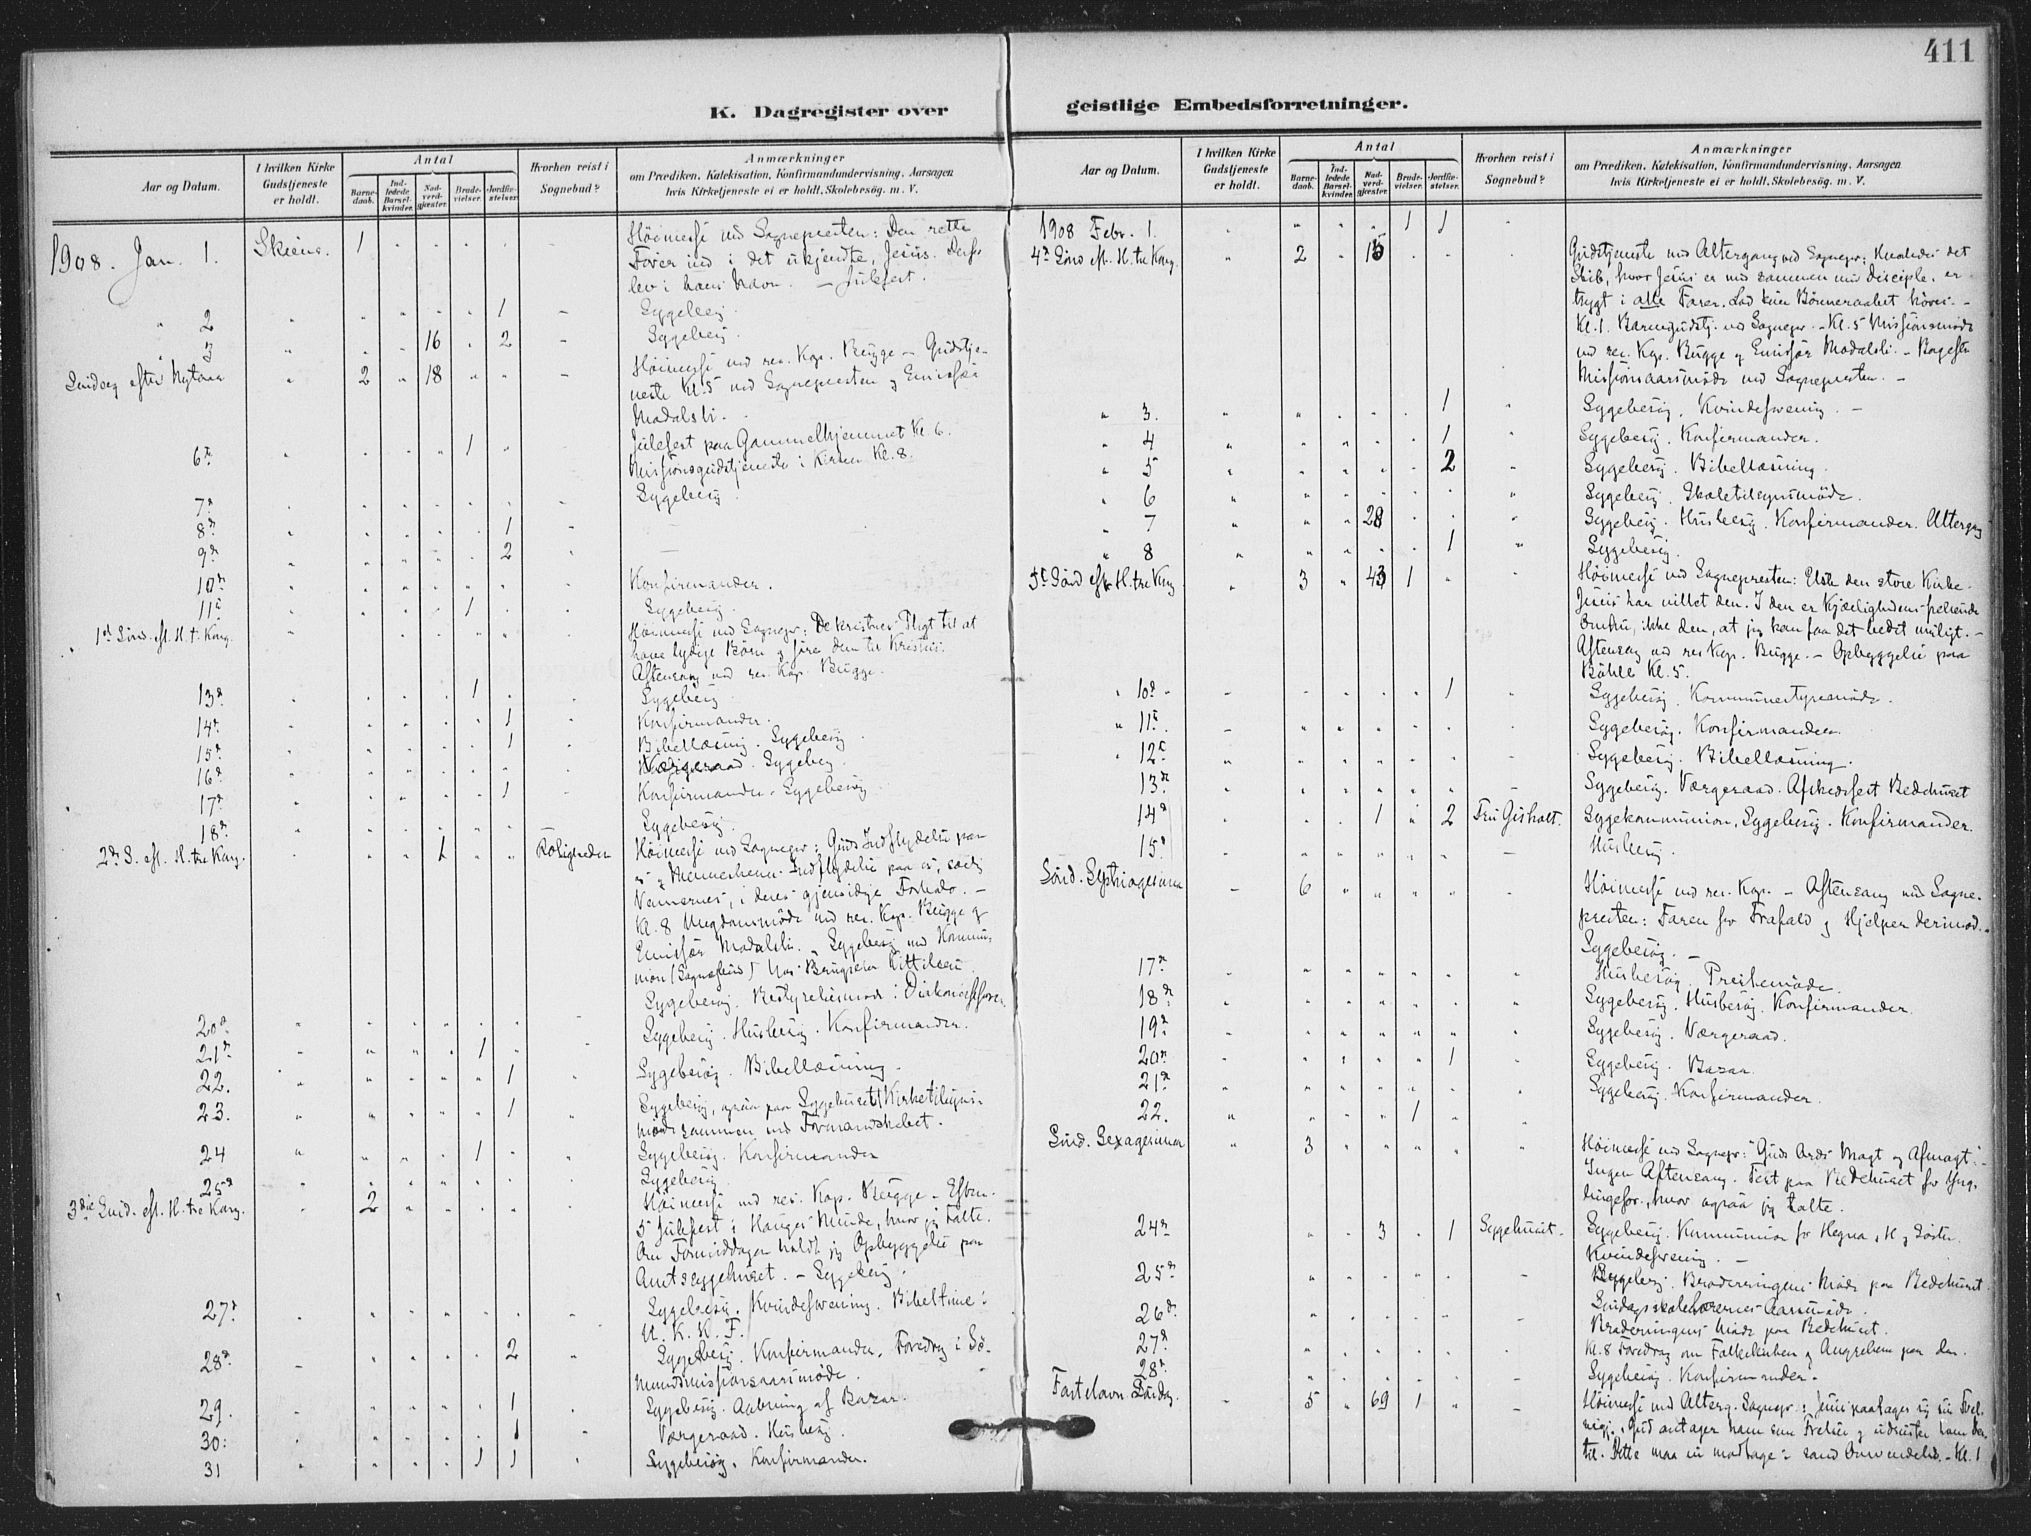 411
K. Dagregister over geistlige Embedsforretninger.
Aar og Datum.
I hvilken Kirke Gudstjeneste er holdt.
Antal
Barnedaab.
Indledede Barselkvinder.
Nadverdgjæster.
Brudevielser.
Jordfæstelser.
Hvorhen reist i Sognebud?
Anmærkninger
om Prædiken, Katekisation, Konfirmandundervisning, Aarsagen
hvis Kirketjeneste ei er holdt, Skolebesøg, m. V.
1908. Jan. 1. Skiens. 1 Høimesse ved Sognepresten: Den rette
Fører ind i det ukjendte, Jesus. Derfor
lev i hans Navn. — Julefest.
2 1 Sygebesøg.
3 16 2 Sygebesøg.
Søndag efter Nytaar 2 18 Høimesse ved res. Kap. Bugge — Gudstje-
neste Kl. 5 ved Sognepresten og Emissær
Modalsli.
6te 1 Julefest paa Gammelhjemmet Kl. 6.
Missionsgudstjeneste i Kirken Kl. 8.
7de Sygebesøg.
8de 1
9de 2 —
10de Konfirmander.
11te 1 Sygebesøg.
1ste Sønd. eft. H. t. Kong. Høimesse ved Sognepr: De kristnes Pligt til at
have lydige Børn og føre dem til Kristus.
Aftensang ved res. Kap. Bugge.
13de 1 Sygebesøg
14de 1 Konfirmander.
15de 1 Bibellæsning. Sygebesøg
16de Værgeraad. Sygebesøg
17de 1 Konfirmander. Sygebesøg
18de Sygebesøg.
2den S. eft. H. tre Kong. 1 Roligheden Høimesse ved Sognepr: Guds Indflydelse paa
os og Menneskenes Indflydelse paa os, særlig
Vennernes, i deres gjensidige Forhold. —
Kl. 8 Ungdomsmøde ved res. Kap. Bugge og
Emissær Modalsli. — Sygebesøg med Kommu-
nion (Sognebud) hos Kittilsen
Sygebesøg. Bestyrelsesmøde i Diskonissefor.
20de Sygebesøg. Husbesøg. Konfirmander.
21de 1
22. 1 Sygebesøg. Bibellæsning.
23. 1 Sygebesøg, ogsaa paa Sygehuset. Kirketilsyns-
møde sammen med Formandskabet.
24 1 Sygebesøg. Konfirmander
25de Sygebesøg.
3die Sønd. eft. H. tre Kong. 2 Høimesse ved res. Kap. Bugge. — Efterm.
5 Julefest i Hauges Minde, hvor jeg talte.
Om Formiddagen holdt jeg Opbyggelse paa
Amtssygehuset. — Sygebesøg.
27de Sygebesøg. Kvindeforening. Bibeltime i
U. K. K. F.
28de 2 Sygebesøg. Konfirmander. Foredrag i Sø-
mandsmissionsaarsmøde.
29. 1 Sygebesøg. Aabning af Bazar.
30. 1 Værgeraad. Husbesøg.
31 1 1 Sygebesøg. Konfirmander.
Aar og Datum.
I hvilken Kirke Gudstjeneste er holdt.
Antal
Barnedaab.
Indledede Barselkvinder.
Nadverdgjæster.
Brudevielser.
Jordfæstelser.
Hvorhen reist i Sognebud?
Anmærkninger
om Prædiken, Katekisation, Konfirmandundervisning, Aarsagen
hvis Kirketjeneste ei er holdt, Skolebesøg, m. V.
1908 Febr. 1. 1 1
4de Sønd eft. H. tre Kong. 2 Gudstjeneste med Altergang ved Sognepr: det
Skib, hvor Jesus er med sammen med Disciple, er
trygt i alle Farer. Lad kun Bønneraabet høres. —
Kl. 1. Barnegudstj. ved Sognepr. — Kl. 5 Missionsmøde
ved res. Kap. Bugge og Emissær Modalsli. —
Missionsaarsmøde ved Sognepresten. —
3. 1 Sygebesøg. Kvindeforening. —
4 1 Sygebesøg. Konfirmander.
5 2 Sygebesøg. Bibellæsning.
6 Sygebesøg. Skoletilsynsmøde.
7 28 Sygebesøg. Husbesøg. Konfirmander. Altergang
8 1 Sygebesøg.
5te Sønd eft. H. tre Kong 3 43 1 Høimesse ved Sognepresten: den store Kirke.
Jesus har villet den. I den er Kjærlighedens frelsende
Omsorg, ikke den, at jeg kan faa det bedst muligt. —
Aftensang ved res Kap. Bugge. — Opbyggelse paa
Bøhle Kl. 5.
10de 1 Sygebesøg. Kommunestyremøde.
11te Sygebesøg. Konfirmander.
12te Sygebesøg. Bibellæsning.
13de Sygebesøg. Værgeraad. Afskedsfest Bedehuset
14de 1 2 Fru Gisholt. Sygekommunion, Sygebesøg. Konfirmander.
15de — Husbesøg.
Sønd. Septuagesima 6 Høimesse ved res. Kap. — Aftensang ved Sogne-
presten: Faren for Frafald og Hjælpen derimod.
Sygebesøg. —
17de Husbesøg. Prestemøde.
18de Sygebesøg. Husbesøg. Konfirmander.
19de Sygebesøg. Værgeraad.
20de 1 Sygebesøg. Bazar.
21de Sygebesøg. Konfirmander.
22. 1
Sønd. Sexagesima 3 Høimesse ved Sognepr: Guds Ords Magt og Afmagt. —
Ingen Aftensang. Fest paa Bedehuset for Yng-
lingefor., hvor ogsaa jeg talte.
24de 3 1 Sygehuset. Sygebesøg. Kommunion for Hegna, H. og Søster.
Kvindeforening. —
25de Sygebesøg. Broderringens Møde paa Bedehuset.
Søndagsskolelærernes Aarsmøde.
26de Broderringens Møde paa Bedehuset.
27de Kl. 8 Foredrag om Folkekirken og Angrebene paa den.
28de Sygebesøg. Konfirmander.
Fastelavn Søndag. 5 69 1 Høimesse med Alterg. Sognepr: Jesus paatager sig sin Frel-
Gud antager ham som Frelser og udruster ham der-
til. Dette maa vi modtage i sand Omvendelse. — Kl. 1